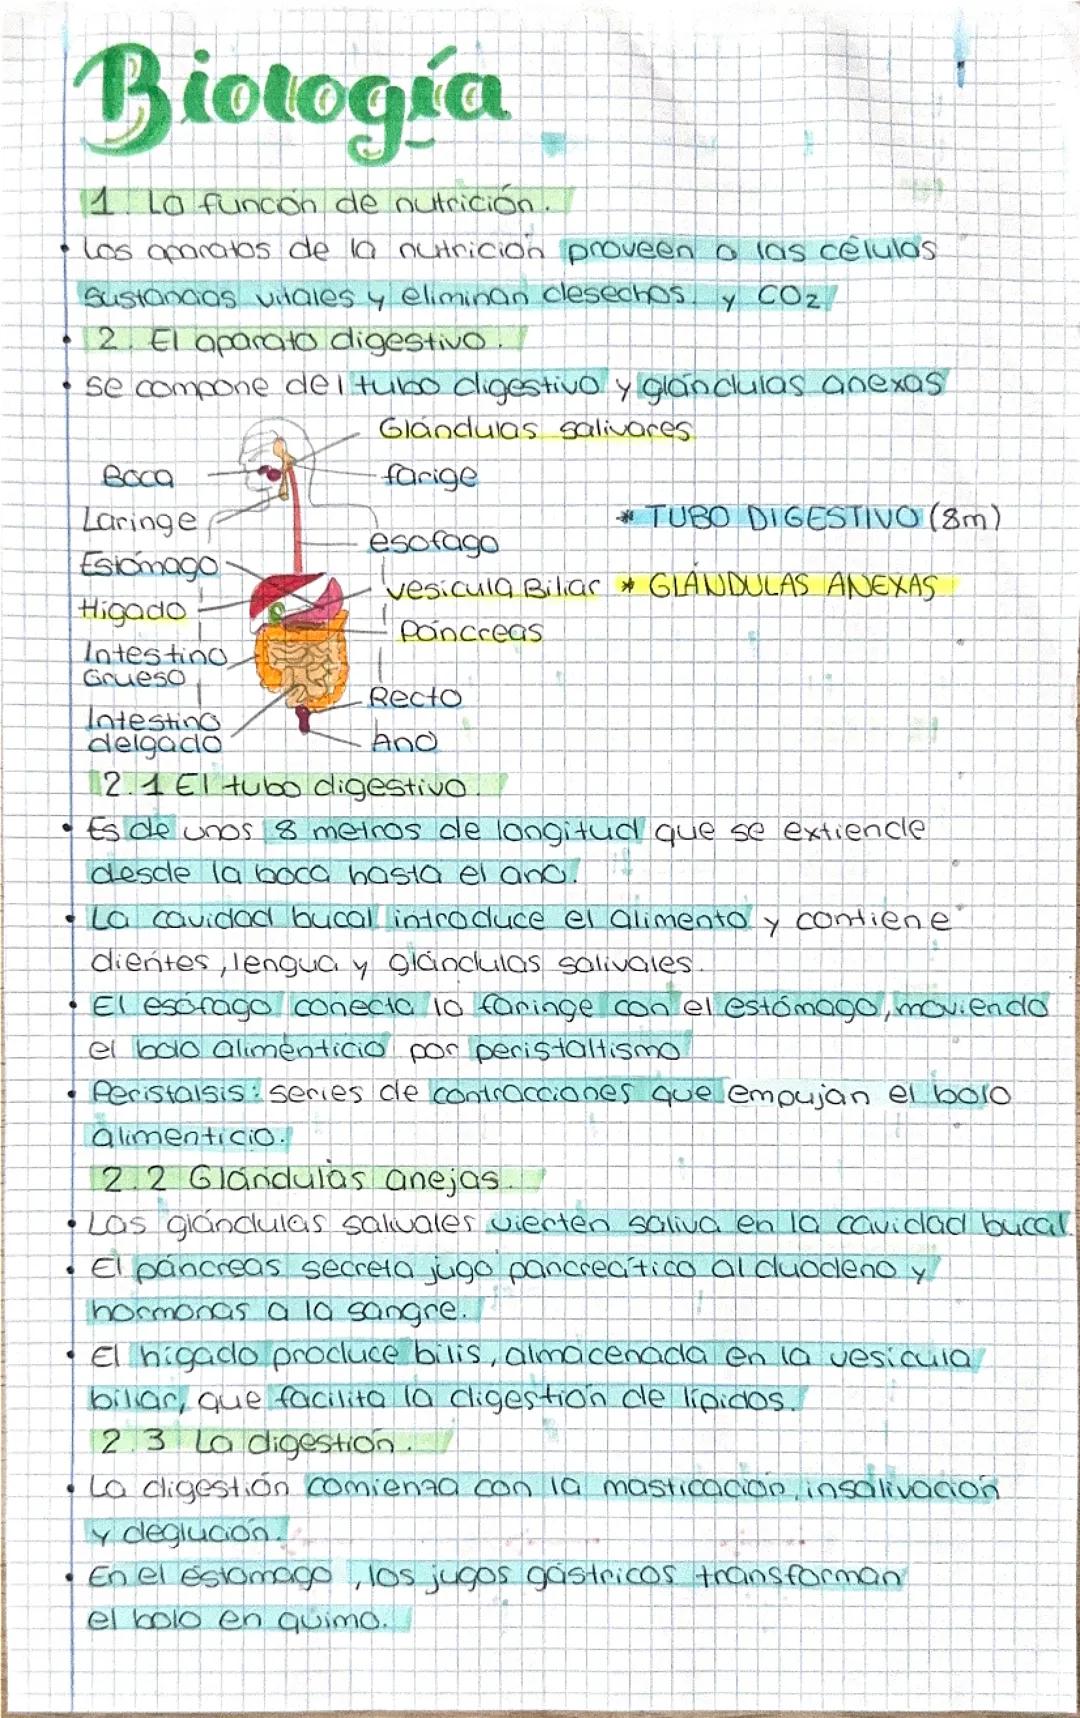 Biología
1. La función de nutrición.
Los aparatos de la nutrición proveen a las células
sustancias vitales y eliminan desechos y CO2
2. El aparato digestivo.
se compone del tubo digestivo y glándulas anexas
Glándulas salivares
Boca
farige
Laringe
* TUBO DIGESTIVO (8m)
esofago
Estómago
vesicula Biliar * GLÁNDULAS ANEXAS
Higado
Páncreas
Intestino
Grueso
Recto
Intestino
delgado
Ano
2.1 El tubo digestivo.
Es de unos 8 metros de longitud que se extiende
desde la boca hasta el ano.
La cavidad bucal introduce el alimento y contiene
dientes, lengua y glándulas salivales.
El esófago conecta la faringe con el estómago, moviendo
el bolo alimenticio por peristaltismo
Peristalsis: series de contracciones que empujan el bolo
alimenticio.
2.2 Glándulas anejas.
Las glándulas salivales vierten saliva en la cavidad bucal.
El páncreas secreta jugo pancreático al duodeno y
hormonas a la sangre.
El hígado produce bilis, almacenada en la vesícula
biliar, que facilita la digestión de lípidos.
2.3 La digestión.
La digestión comienza con la masticación, insalivación
y deglución.
En el estómago, los jugos gástricos transforman
el bolo en quimo.